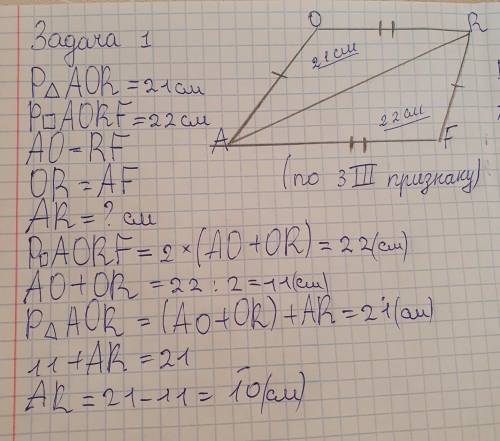 Задача 1
P△AOR = 21см
P□AORF = 22см
AO = RF
OR = AF
AR = ? см
P□AORF = 2 × (AO + OR) = 22(см)
AO + OR = 22 : 2 = 11(см)
P△AOR = (AO + OR) + AR = 21(см)
11 + AR = 21
AR = 21 - 11 = 10(см)
O
R
21см
22см
A
F
(по 3 III признаку)